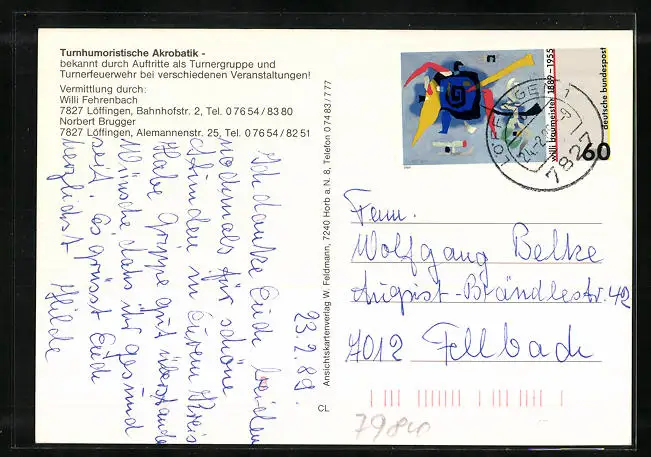 Turnhumoristische Akrobatik -
bekannt durch Auftritte als Turnergruppe und
Turnerfeuerwehr bei verschiedenen Veranstaltungen!
Vermittlung durch:
Willi Fehrenbach
7827 Löffingen, Bahnhofstr. 2, Tel. 0 76 54 / 83 80
Norbert Brugger
7827 Löffingen, Alemannenstr. 25, Tel. 0 76 54 / 82 51
23.2.89.
Ich danke Euch beiden
nochmals für schöne
Stunden in Eurem Kreis
Habe Grippe gut überstanden
Wünsche dass ihr gesund
seit. Es grüsst Euch
herzlichst Hilde
Ansichtskartenverlag W. Feldmann, 7240 Horb a. N. 8, Telefon 0 74 83 / 7 77
CL
willi baumeister 1889-1955
deutsche bundespost
60
LÖFFINGEN 1
7827
Fam.
Wolfgang Belke
August-Brändlestr. 42
7012 Fellbach
79840